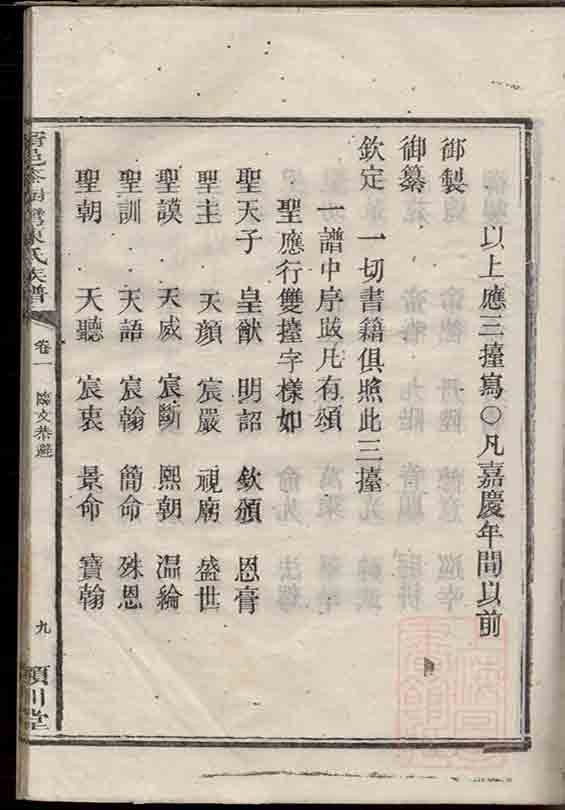 以上應三擡寫〇凡嘉慶年間以前
御製
御纂
欽定 一切書籍俱照此三擡
一譜中序跋凡有頌
聖應行雙擡字樣如
聖天子 皇猷 明詔 欽頒 恩膏
聖主 天顏 宸嚴 視廟 盛世
聖謨 天威 宸斷 熙朝 溫綸
聖訓 天語 宸翰 簡命 殊恩
聖朝 天聽 宸衷 景命 寶翰
氏族譜 卷一 臨文恭避 九 潁川堂